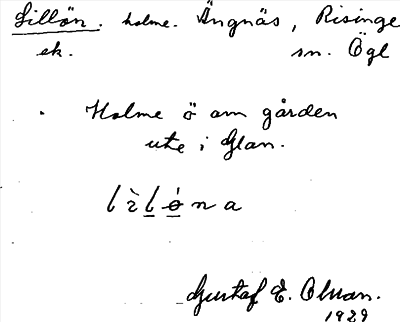 Lillön. holme. Ängnäs, Risinge
ek. sn. Ögl
Holme ö om gården
ute i Glan.
lìlǿna
Gustaf E. Olsson.
1929